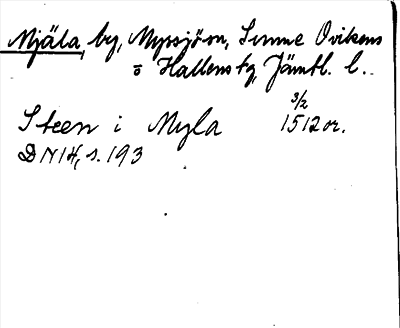 Mjäla, by, Myssjö sn, Sunne Ovikens
o Hallens tg, Jämtl. l..
3/2
Steen i Myla 1512 or.
DN 14, s. 193